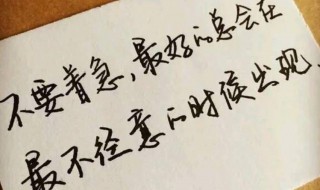 不要着急，最好的总会在
最不经意的时候出现。